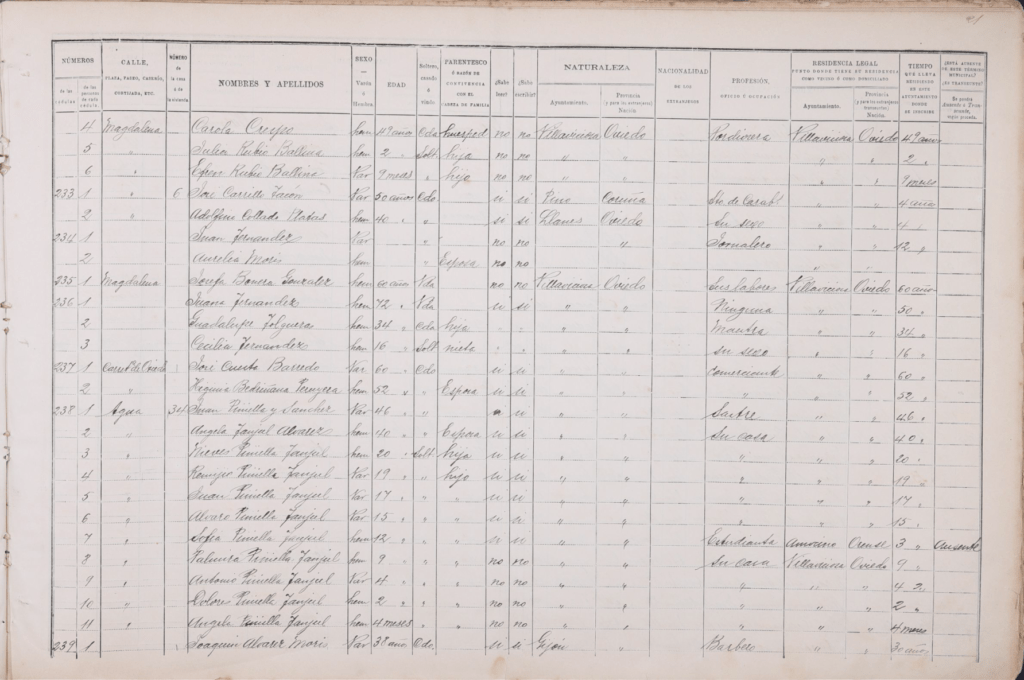 NÚMEROS | CALLE, PLAZA, PASEO, CASERÍO, CORTIJADA, ETC. | NÚMERO de la casa | NOMBRES Y APELLIDOS | SEXO — Varón ó Hembra | EDAD | Soltero, casado ó viudo | PARENTESCO Ó RAZÓN DE CONVIVENCIA CON EL CABEZA DE FAMILIA | ¿Sabe leer? | ¿Sabe escribir? | NATURALEZA Ayuntamiento. Provincia (y para los extranjeros) Nación. | NACIONALIDAD DE LOS EXTRANJEROS | PROFESIÓN, OFICIO Ú OCUPACIÓN | RESIDENCIA LEGAL PUNTO DONDE TIENE SU RESIDENCIA COMO VECINO Ó COMO DOMICILIADO Ayuntamiento. Provincia Nación. | TIEMPO QUE LLEVA
4 Magdalena Carola Crespo hem 49 años Cda huesped no no Villaviciosa Oviedo Pordiosera Villaviciosa Oviedo 49 años
5 " Julia Rubio Ballina hem 2 " Solt hija no no " " " " 2 "
6 " Efren Rubio Ballina Var 9 meses " hijo no no " " " " 9 meses
233 1 " 6 Jose Carrillo Var 50 años Cdo si si Pino Coruña " " 4 año
2 " Adolfina Collado hem 40 " " si si Llanes Oviedo Su sexo " " 4 "
234 1 Juan Fernandez Var " no no " Jornalero " " 12 "
2 Aurelia Moris hem " Esposa no no
235 1 Magdalena Josefa Gonzalez hem 60 año Vda no no Villaviciosa Oviedo Sus labores Villaviciosa Oviedo 60 año
236 1 Juana Fernandez hem 72 " Vda si si " " Ninguna " " 50 "
2 Guadalupe Folgueras hem 34 " Cda hija " " Maestra " " 34 "
3 Cecilia Fernandez hem 16 " Solt nieta " " su sexo " " 16 "
237 1 Jose Cuesta Barredo Var 60 " Cdo si si " " comerciante " " 60 "
2 " Bedriñana hem 52 " " Esposa si si " " " " 52 "
238 1 Agua 34 Juan Piniella y Sanchez Var 46 " " si si " " Sastre " " 46 "
2 " Angela Fanjul Alvarez hem 40 " " Esposa si si " " Su casa " " 40 "
3 " Nieves Piniella Fanjul hem 20 " Solt hija si si " " " " " 20 "
4 " Remigio Piniella Fanjul Var 19 " " hijo si si " " " " " 19 "
5 " Juan Piniella Fanjul Var 17 " " " si si " " " " " 17 "
6 " Alvaro Piniella Fanjul Var 15 " " " si si " " " " " 15 "
7 " Sofia Piniella Fanjul hem 12 " " " si si " " Estudianta Orense 3 " Ausente
8 " Palmira Piniella Fanjul hem 9 " " no no " " Su casa Villaviciosa Oviedo 9 "
9 " Antonio Piniella Fanjul Var 4 " " " no no " " " " " 4
10 " Dolores Piniella Fanjul hem 2 " " " no no " " " " " 2 "
11 " Angela Piniella Fanjul hem 4 meses " " no no " " " " 4 meses
239 1 Joaquin Alvarez Moris Var 38 año Cdo si si Gijon " Barbero " " 30 años